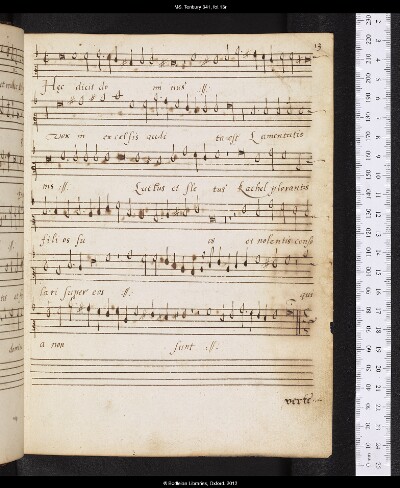 MS. Tenbury 341, fol.13r
13
Hęc dicit do mi nus :||:
Vox in excelsis audi ta est Lamentatio
nis :||: Luctus et fle tus Rachel plorantis
filios su os et nolentis conso
lari super eos :||: qui
a non sunt :||:
verte
© Bodleian Libraries, Oxford, 2012